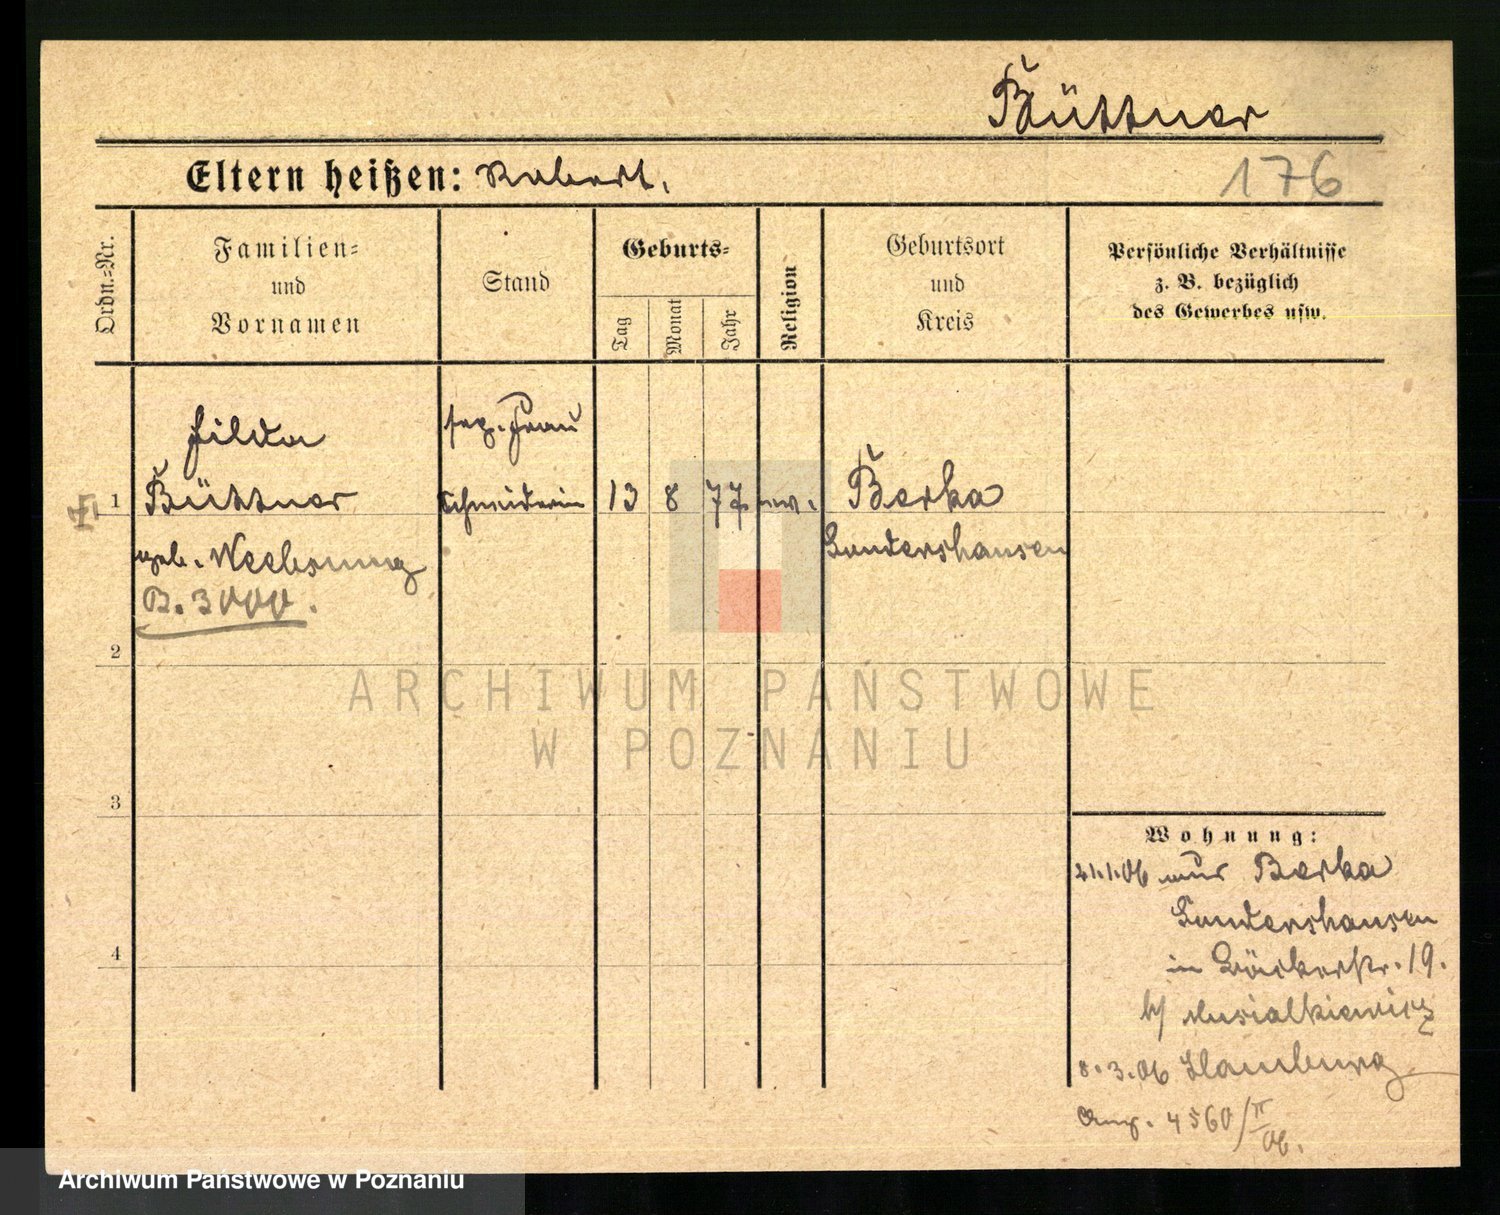 Büttner
Eltern heißen: Robert.
176
Ordn.-Nr.
Familien-
und
Vornamen
Stand
Geburts-
Tag
Monat
Jahr
Religion
Geburtsort
und
Kreis
Persönliche Verhältnisse
z. B. bezüglich
des Gewerbes usw.
Hilda
sep. Frau
1
Büttner
Schneiderin
13
8
77
ev.
Berka
geb.
Sondershausen
B. 3000.
2
ARCHIWUM PAŃSTWOWE
W POZNANIU
3
Wohnung:
21.1.06 aus Berka
Sondershausen
in Bäckerstr. 19.
b/ Musialkiewicz
8.3.06 Hamburg
4
Anz. 4560/II
06.
Archiwum Państwowe w Poznaniu